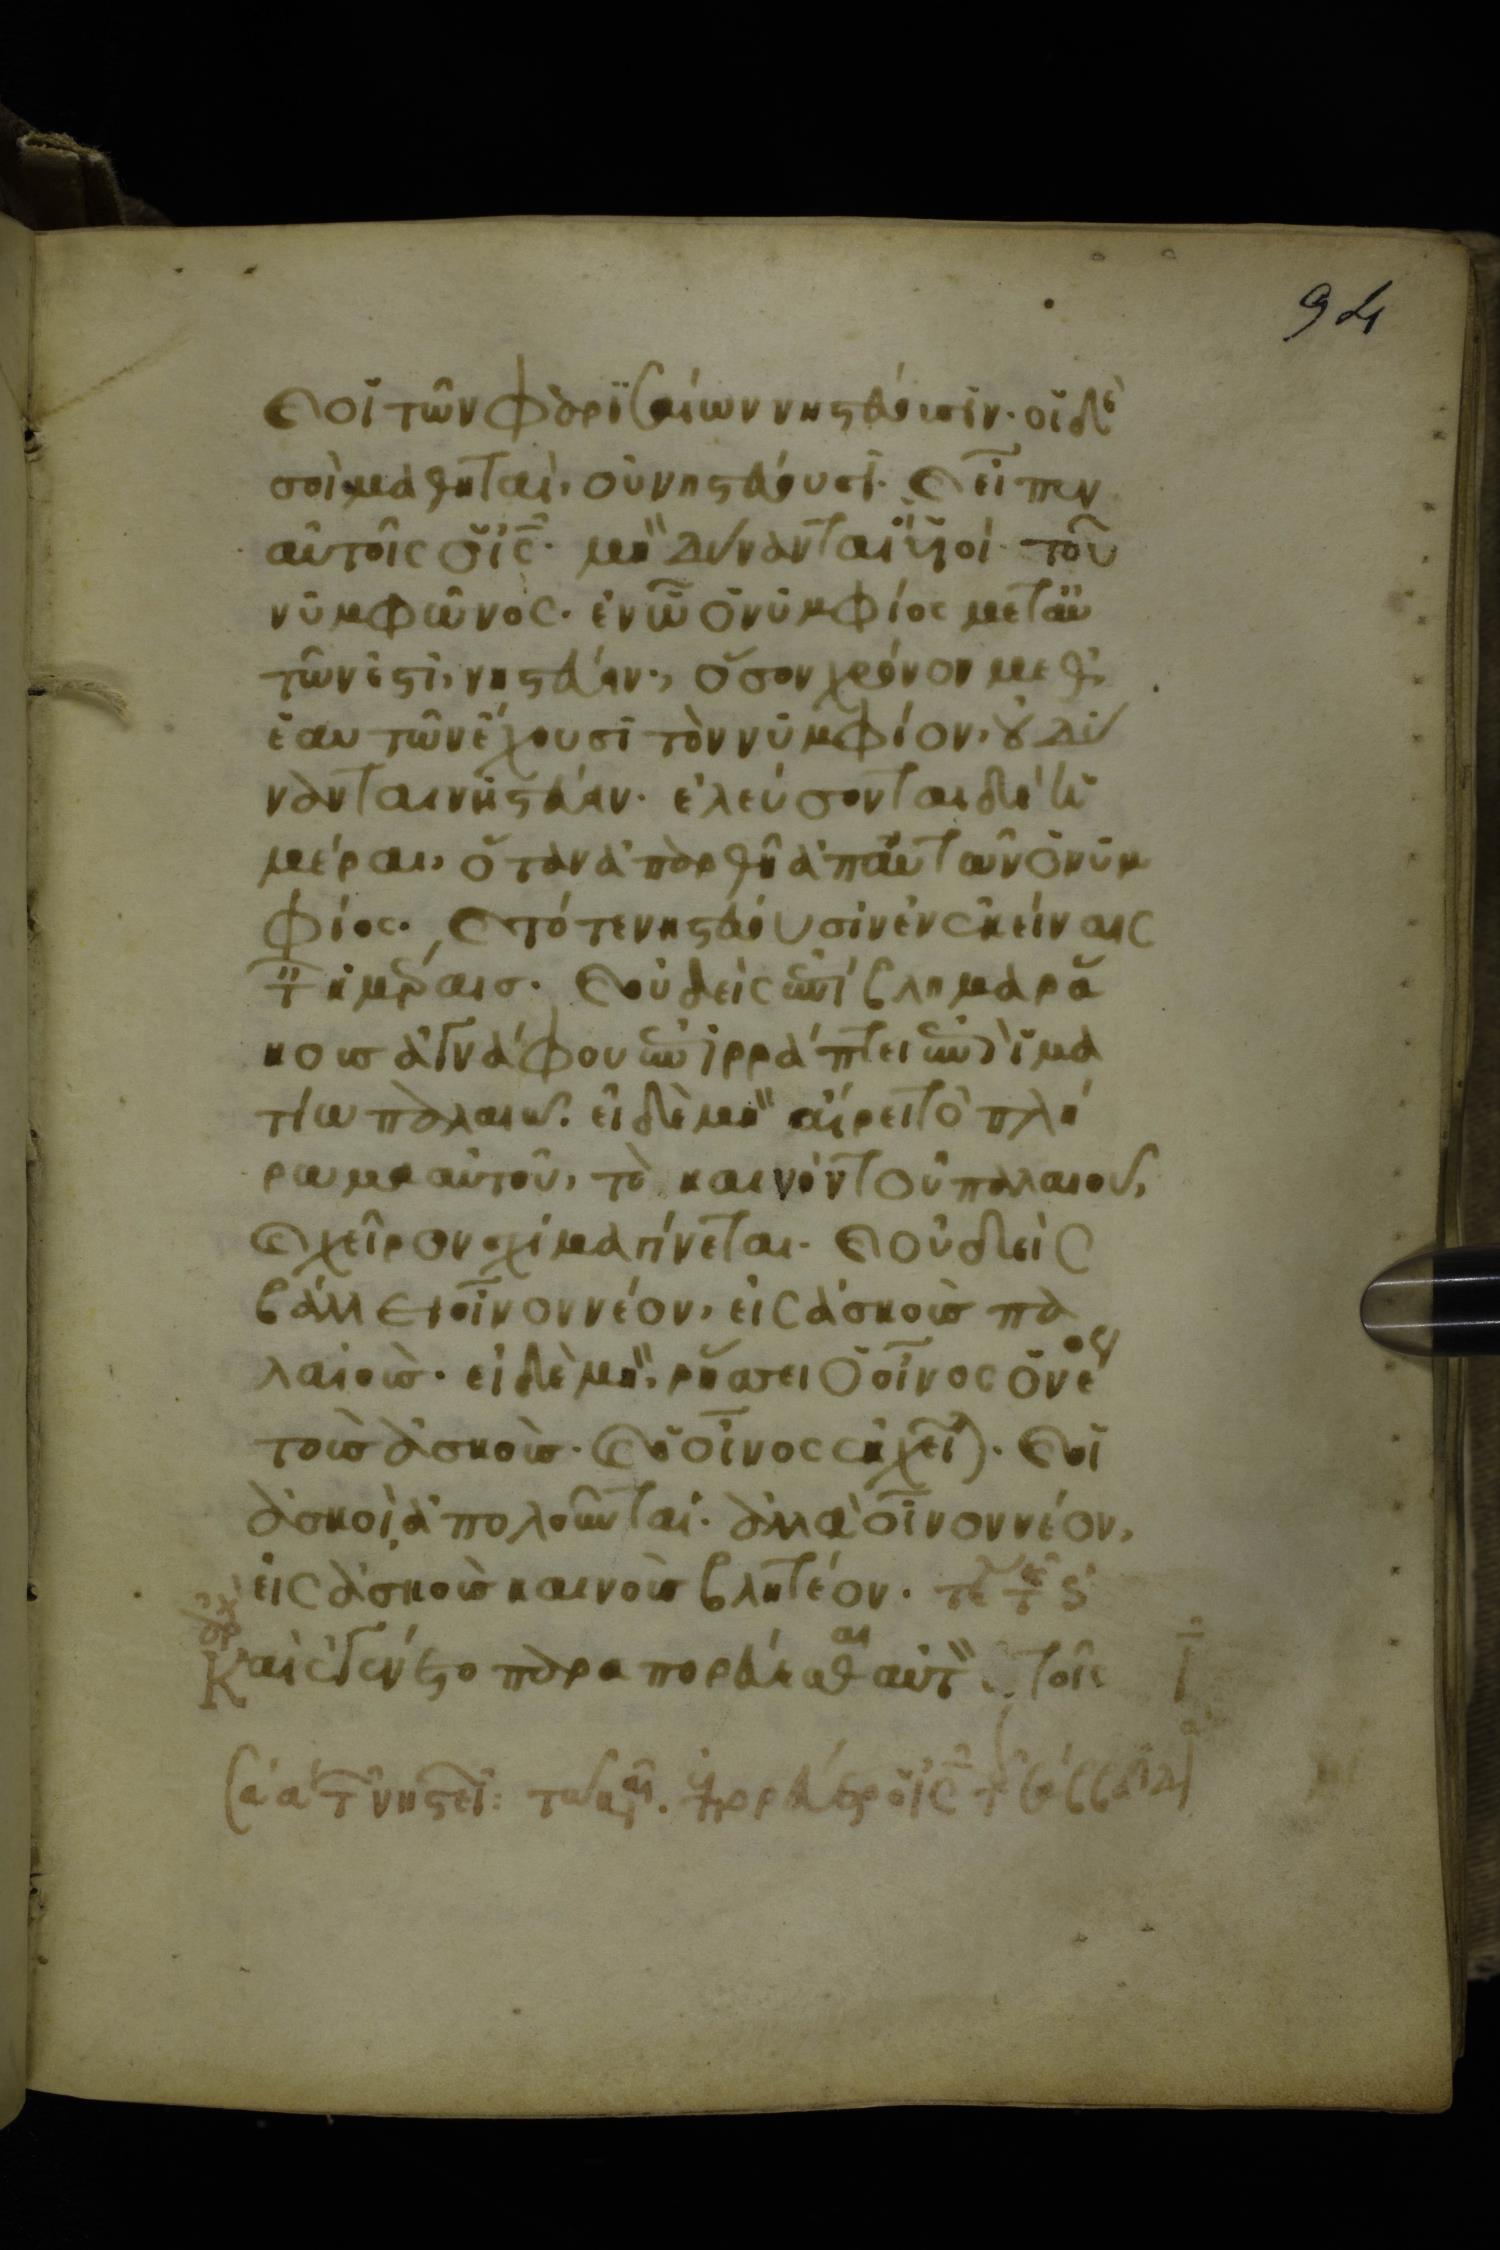 94
καὶ οἱ τῶν φαρισαίων νηστεύουσιν· οἱ δὲ
σοὶ μαθηταὶ, οὐ νηστεύουσι· καὶ εἶπεν
αὐτοῖς ὁ ἰς· μὴ δύνανται οἱ υἱοὶ τοῦ
νυμφῶνος· ἐν ὧ ὁ νυμφίος μετ αὐ
τῶν ἐστὶ, νηστεύειν·, ὅσον χρόνον μεθ
ἑαυτῶν ἔχουσι τὸν νυμφίον, οὐ δύ
νανται νηστεύειν· ἐλεύσονται δὲ ἡ
μέραι, ὅταν ἀπαρθῆ ἀπ αὐτῶν ὁ νυμ
φίος· καὶ τότε νηστεύουσιν ἐν ἐκείναις
ταῖς ἡμέραισ· καὶ οὐδεὶς ἐπίβλημα ρά
κους ἀγνάφου ἐπιρράπτει ἐπὶ ἱμα
τίω παλαιῶ· εἰ δὲ μὴ αἴρει τὸ πλή
ρωμα αὐτοῦ, τὸ καινὸν τοῦ παλαιοῦ,
καὶ χεῖρον σχίσμα γίνεται· καὶ οὐδεὶς
βάλλει οἶνον νέον, εἰς ἀσκοὺς πα
λαιούς· εἰ δὲ μὴ, ρήσσει ὁ οἶνος ὁ νέος
τοὺς ἀσκούς· καὶ ὁ οἶνος ἐκχεῖται· καὶ οἱ
ἀσκοὶ ἀπολοῦνται· ἀλλὰ οἶνον νέον,
εἰς ἀσκοὺς καινοὺς βλητέον· τε
ἀρχ
Καὶ ἐγένετο παραπορεύεσθαι αὐτὸν ἐν τοῖς